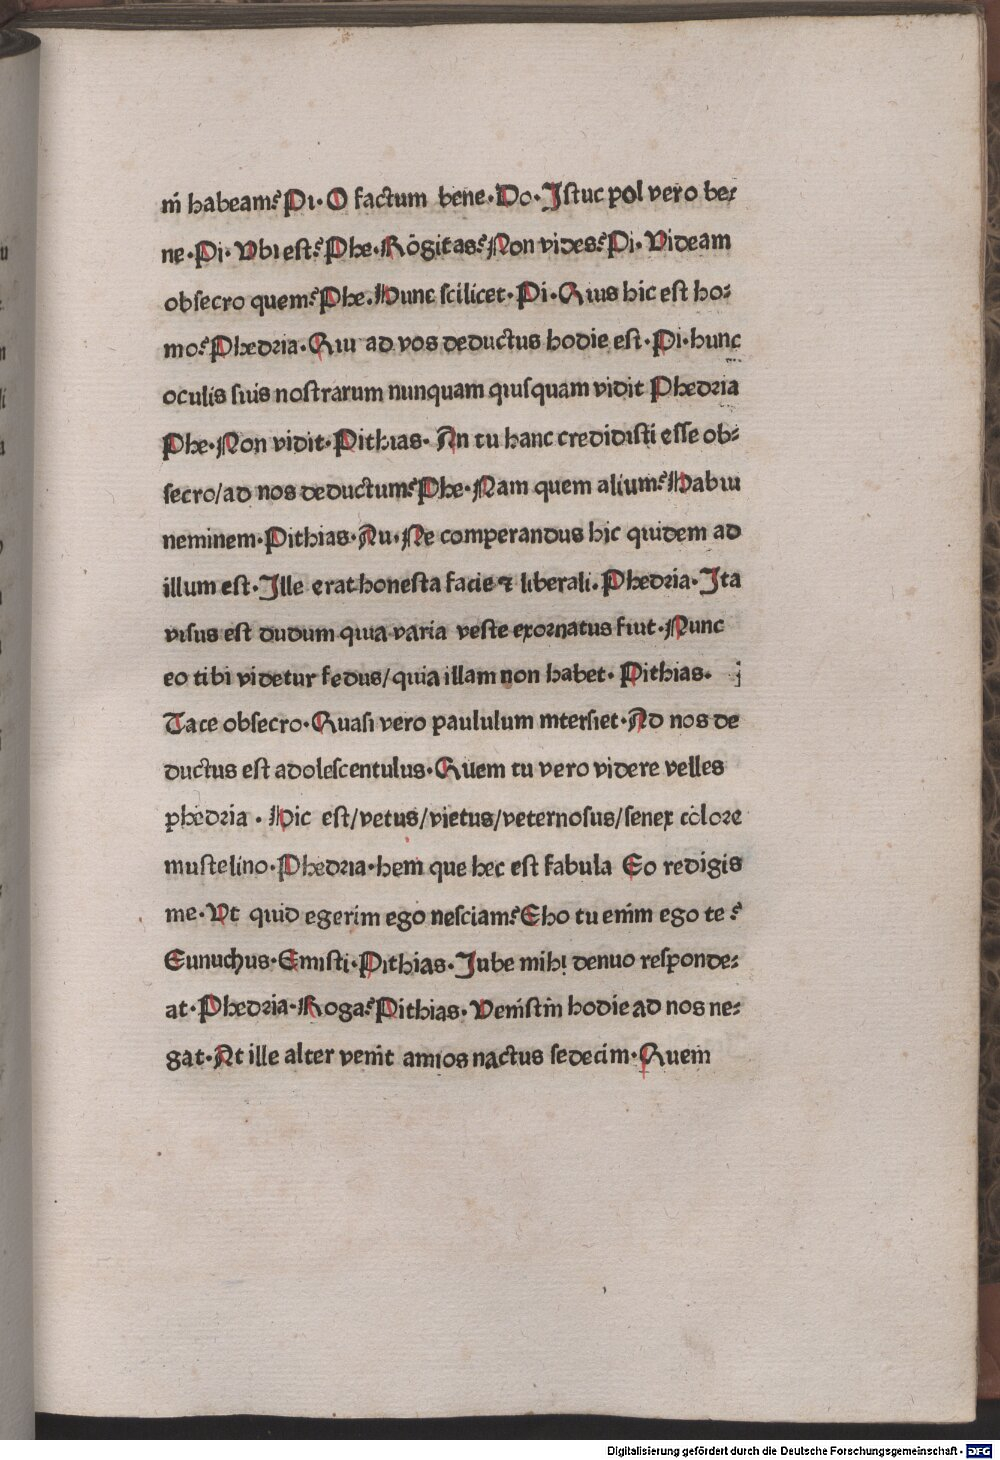 m̄ habeam? Pi· O factum bene· Do· Iſtuc pol vero be⸗
ne· Pi· Vbi eſt? Phe· Rōgitas? Non vides? Pi· Videam
obſecro quem? Phe. Hunc ſcilicet· Pi· Quis hic eſt ho⸗
mo? Phedria· Qui ad vos deductus hodie eſt· Pi· hunc
oculis ſuis noſtrarum nunquam quiſquam vidit Phedria
Phe· Non vidit· Pithias· An tu hanc credidiſti eſſe ob⸗
ſecro/ad nos deductum? Phe· Nam quem alium? Habui
neminem· Pithias· Au· Ne comperandus hic quidem ad
illum eſt· Ille erat honeſta facie ⁊ liberali. Phedria· Ita
viſus eſt dudum quia varia veſte exornatus fuit· Nunc
eo tibi videtur fedus/quia illam non habet· Pithias·
Tace obſecro· Quaſi vero paululum interſiet· Ad nos de
ductus eſt adoleſcentulus· Quem tu vero videre velles
phedria · Hic eſt/vetus/vietus/veternoſus/ſenex colore
muſtelino· Phedria· hem que hec eſt fabula Eo redigis
me· Vt quid egerim ego neſciam? Eho tu enim ego te ?
Eunuchus· Emiſti· Pithias· Iube mihi denuo reſponde⸗
at· Phedria· Roga? Pithias· Veniſtin hodie ad nos ne⸗
gat· At ille alter venit annos nactus ſedecim· Quem
Digitalisierung gefördert durch die Deutsche Forschungsgemeinschaft · DFG